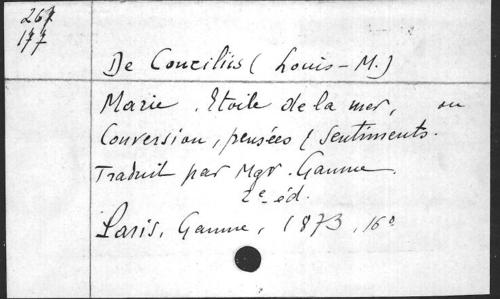 267
177
De Conciliis (Louis-M.)
Marie, Etoile de la mer, ou
Conversion, pensées & sentiments.
Traduit par Mgr. Gaume.
2e éd.
Paris, Gaume, 1873, 16°